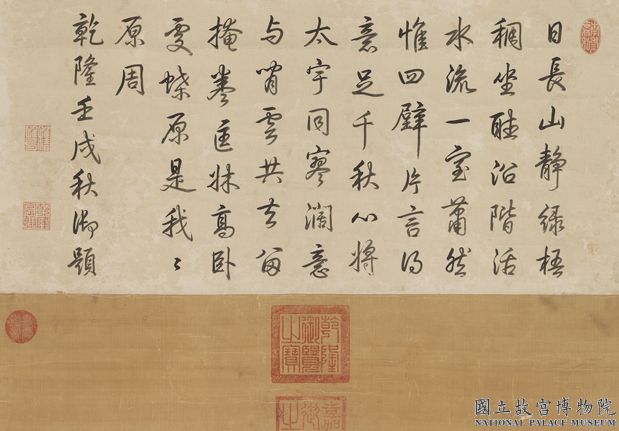 日長山靜綠梧
稠坐聽沿階活
水流一室蕭然
惟四壁片言得
意足千秋心將
太宇同寥濶意
与閒雲共去留
掩卷匡牀高臥
處蝶原是我〻
原周
乾隆壬戌秋御題
乾隆御覽之寶
國立故宮博物院
NATIONAL PALACE MUSEUM